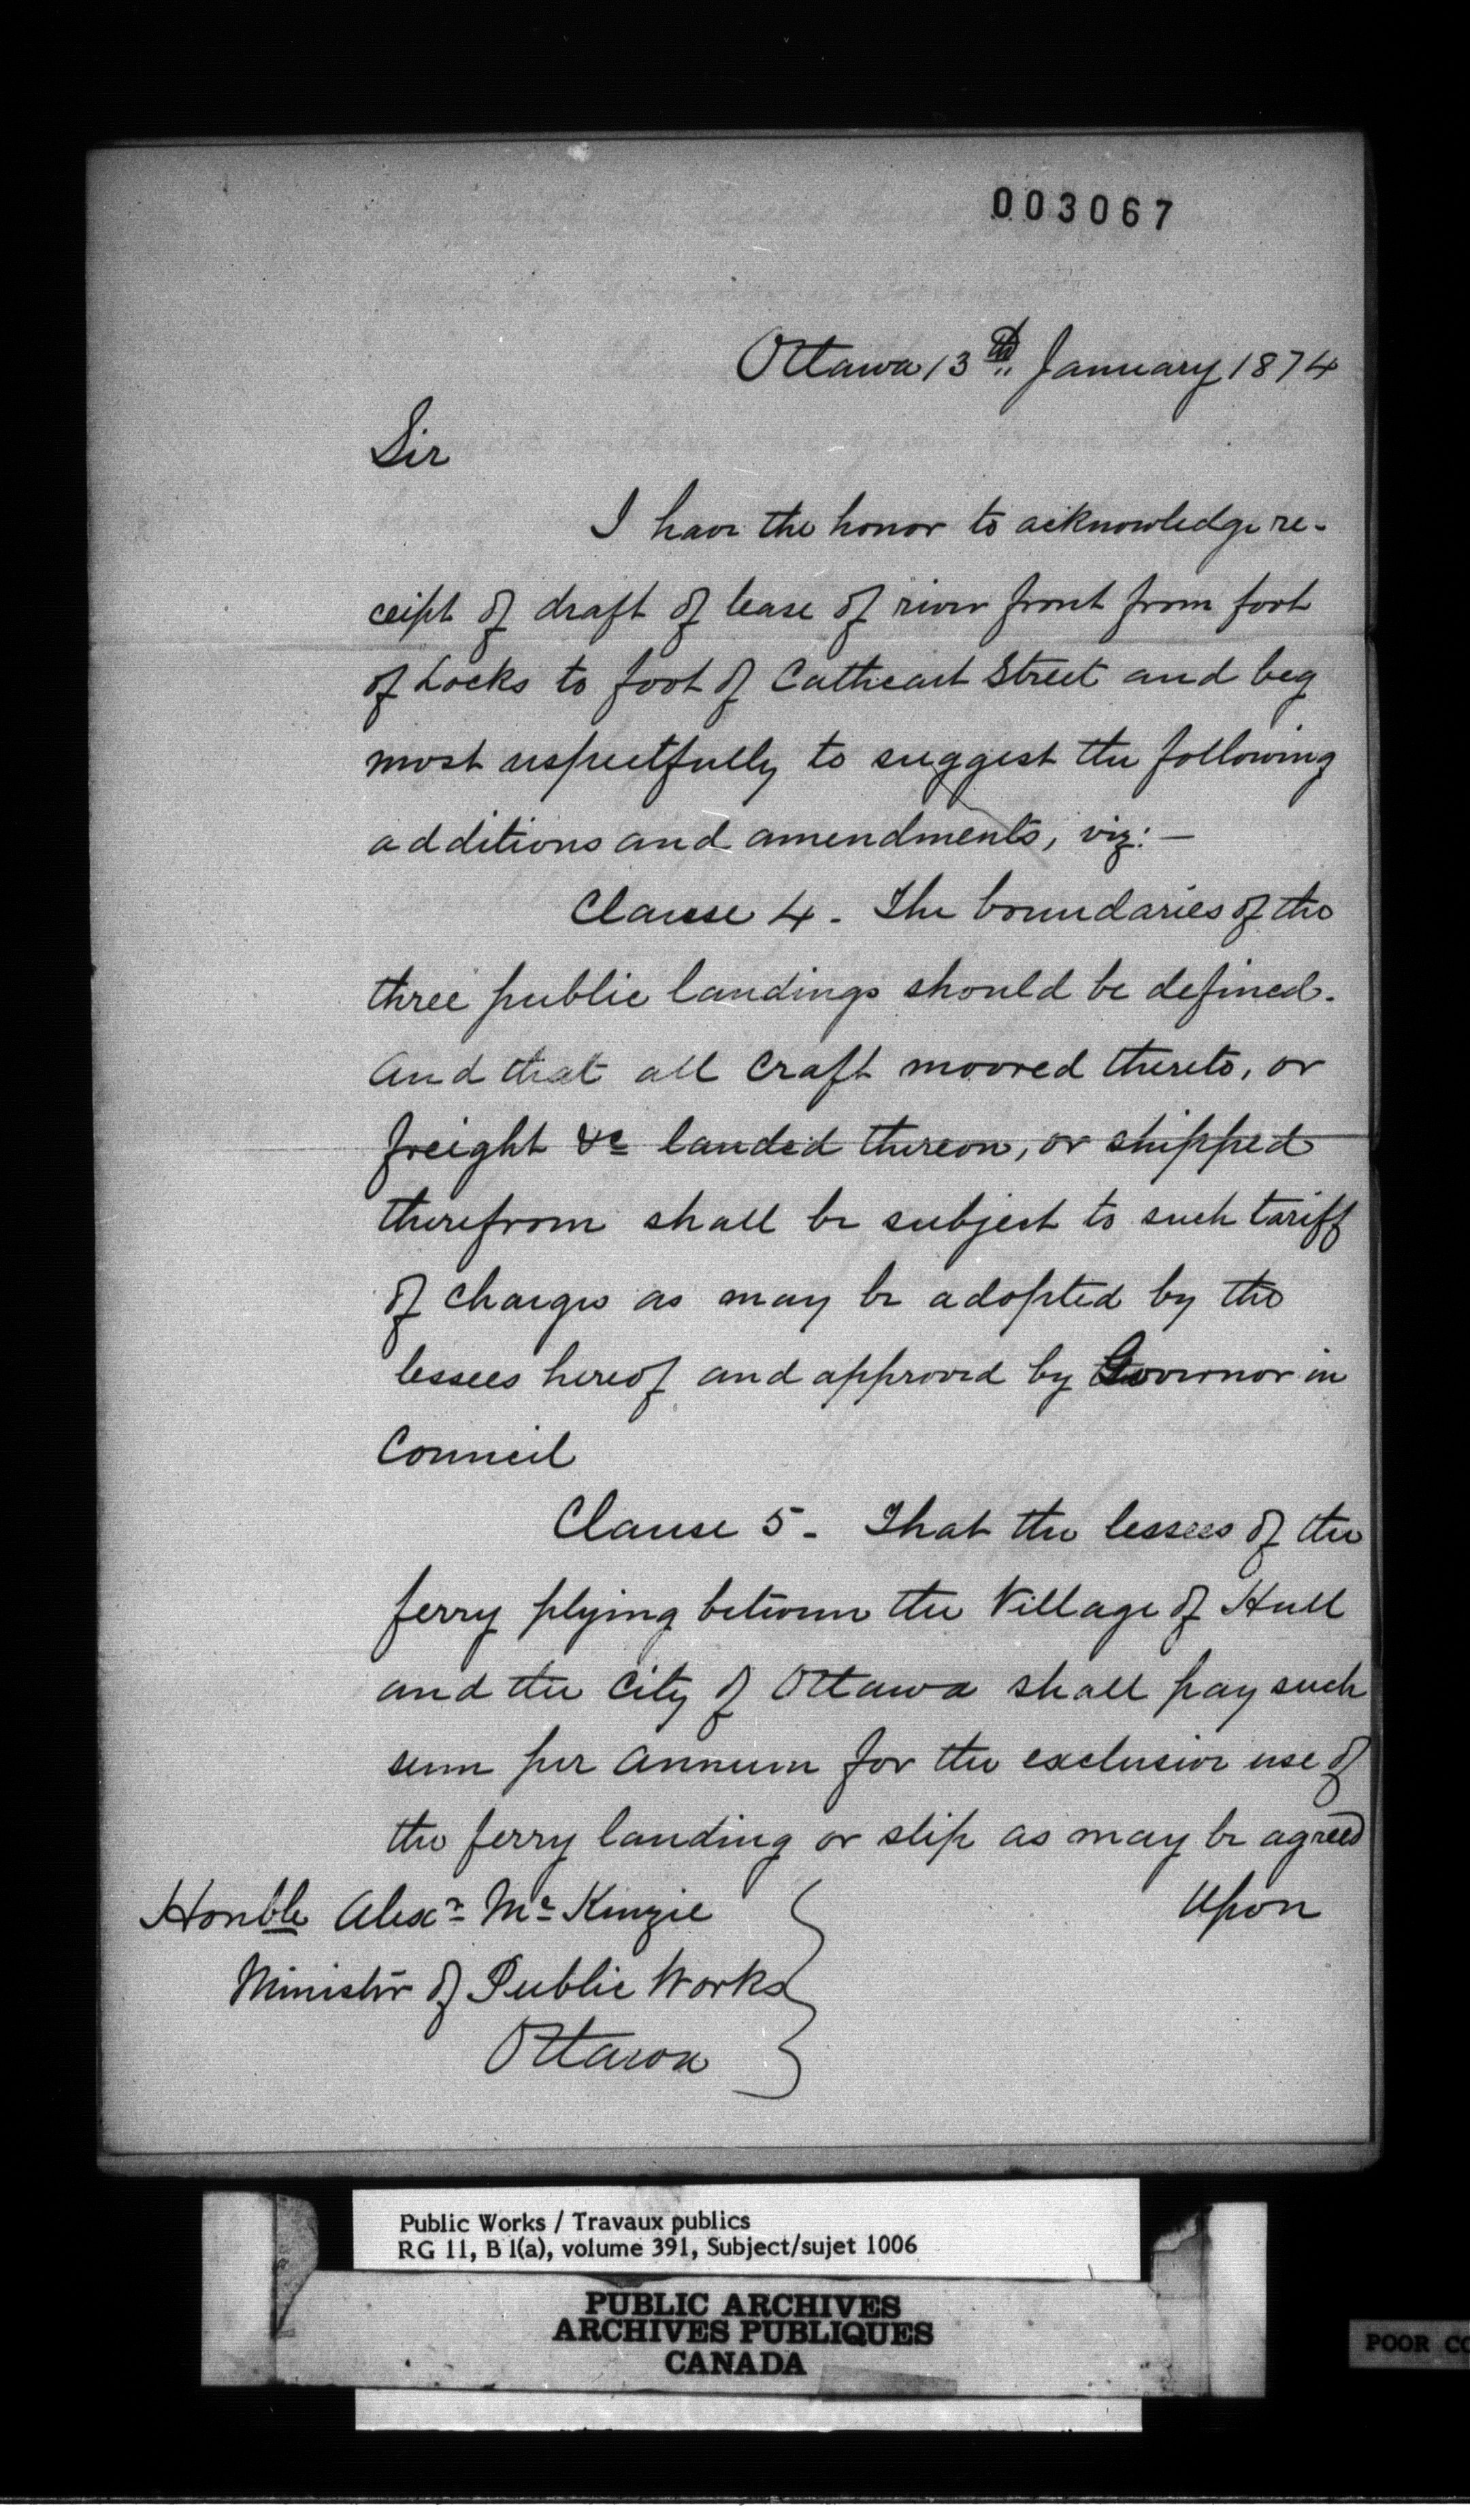 003067
Ottawa 13th January 1874
Sir
I have the honor to acknowledge re-
ceipt of draft of lease of river front from foot
of Locks to foot of Cathcart Street and beg
most respectfully to suggest the following
additions and amendments, viz:—
Clause 4 - The boundaries of the
three public landings should be defined.
And that all Craft moored thereto, or
freight &c landed thereon, or shipped
therefrom shall be subject to such tariff
of charges as may be adopted by the
lessees hereof and approved by Governor in
Council
Clause 5 - That the lessees of the
ferry plying between the Village of Hull
and the City of Ottawa shall pay such
sum per annum for the exclusive use of
the ferry landing or slip as may be agreed
Upon
Honble Alexr McKinzie
Minister of Public Works
Ottawa
Public Works / Travaux publics
RG 11, B 1(a), volume 391, Subject/sujet 1006
PUBLIC ARCHIVES
ARCHIVES PUBLIQUES
CANADA
POOR CO